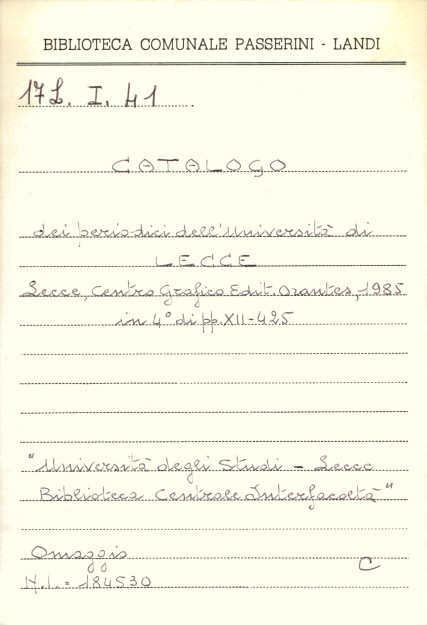 BIBLIOTECA COMUNALE PASSERINI - LANDI
17L. I. 41
CATALOGO
dei periodici dell'Università di
LECCE
Lecce, Centro Grafico Edit. Orantes, 1985
in 4° di pp. XII-425
"Università degli Studi - Lecce
Biblioteca Centrale Interfacoltà"
Omaggio
C
N.I. = 184530